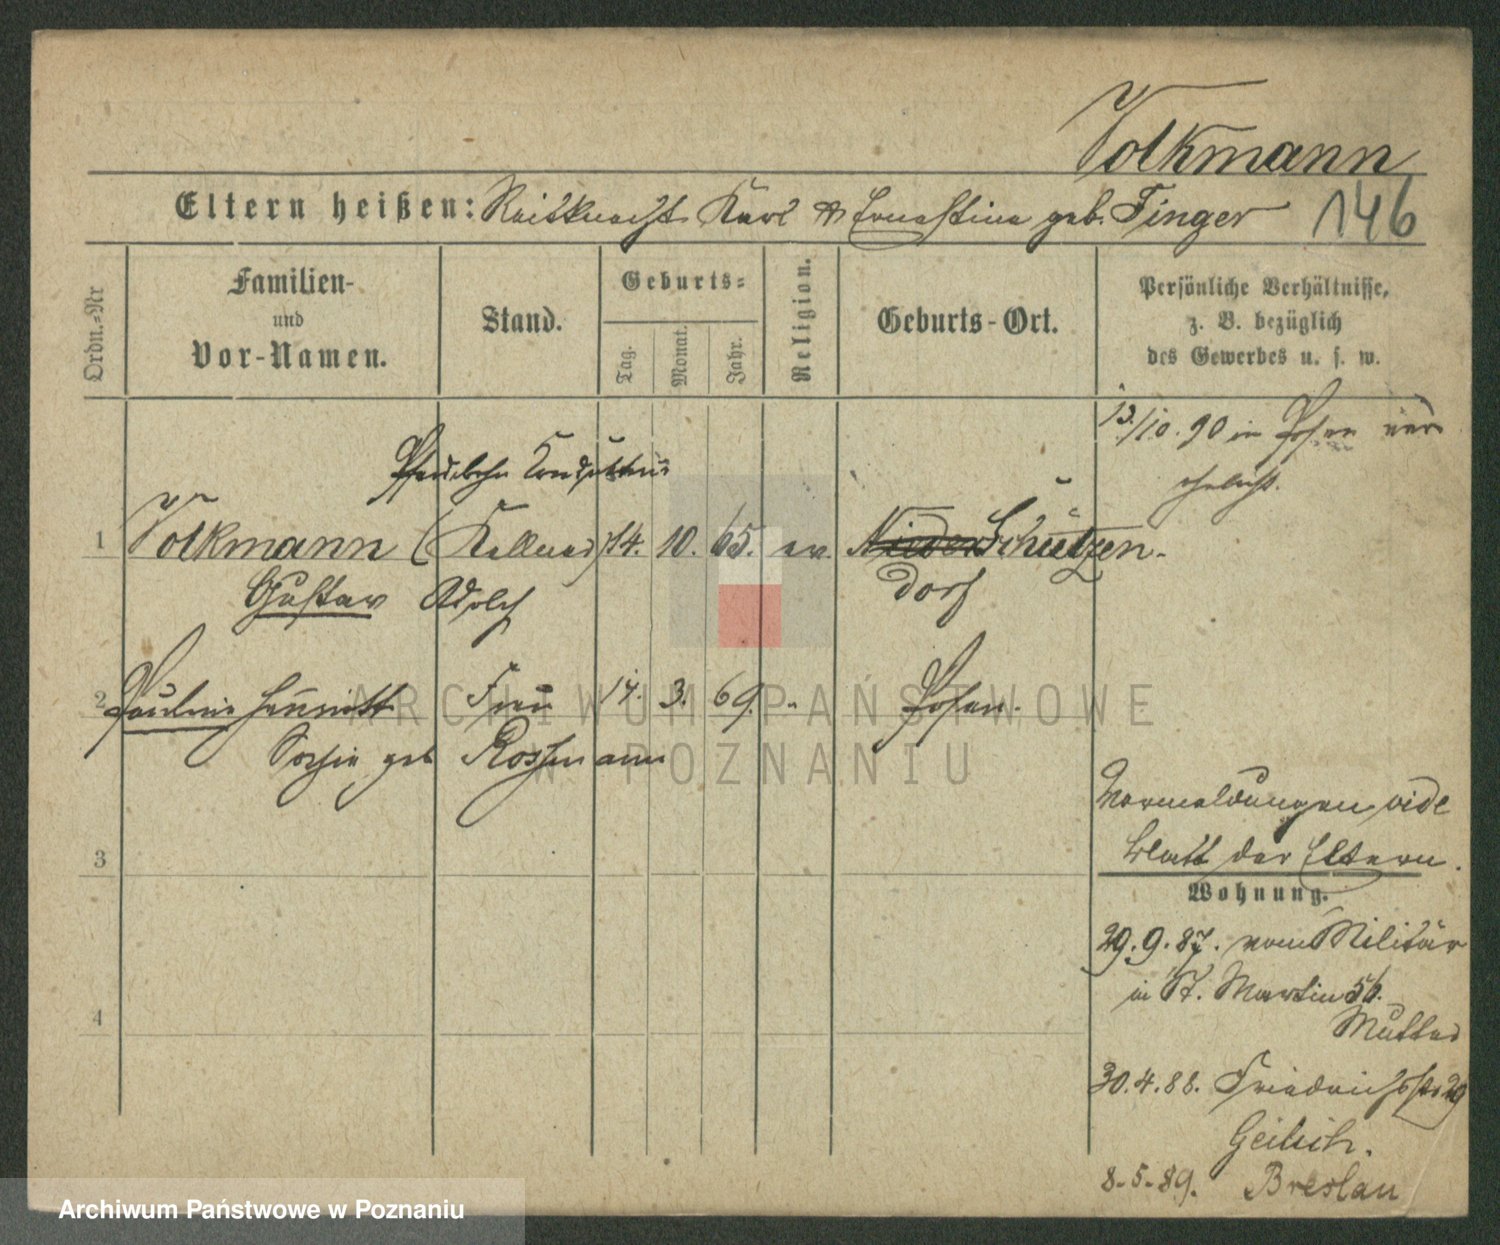 Volkmann
Eltern heißen: Reitknecht Karl & Ernestine geb. Finger 146
Ordn.-Nr
Familien-
und
Vor-Namen.
Stand.
Geburts-
Tag.
Monat.
Jahr.
Religion.
Geburts-Ort.
Persönliche Verhältnisse,
z. B. bezüglich
des Gewerbes u. s. w.
13./10. 90 in Posen ver
ehelicht.
Pferdebahn Kondukteur
1 Volkmann (Kellner) 14. 10. 65. ev. Nieder Schützen-
Gustav Adolf dorf
2 Pauline Henriette Frau 17. 3. 69. " Posen.
Sophie geb Rossmann
Vormeldungen vide
Blatt der Eltern.
3
Wohnung.
29. 9. 87. vom Militär
in St. Martin 56.
Mutter
4
30. 4. 88. Friedrichsstr 29
8. 5. 89. Breslau
ARCHIWUM PAŃSTWOWE
W POZNANIU
Archiwum Państwowe w Poznaniu